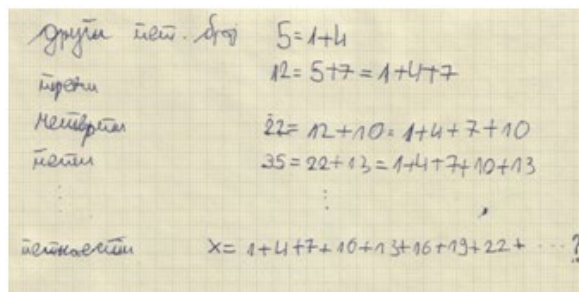 други пет. број 5=1+4
трећи 12=5+7=1+4+7
четврти 22=12+10=1+4+7+10
пети 35=22+13=1+4+7+10+13
⋮ ⋮
петнаести x=1+4+7+10+13+16+19+22+ ⋯ ?